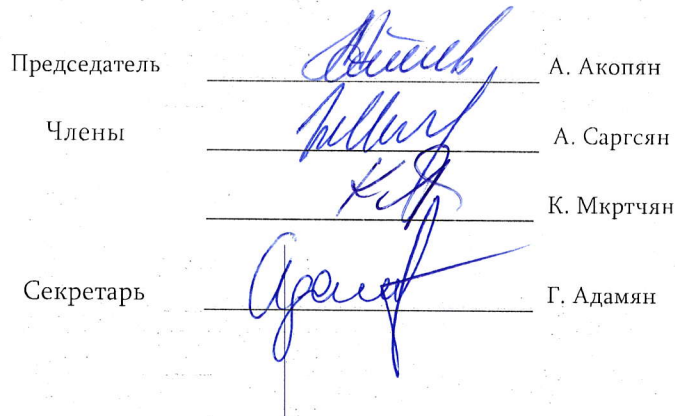 Председатель А. Акопян
Члены А. Саргсян
К. Мкртчян
Секретарь Г. Адамян